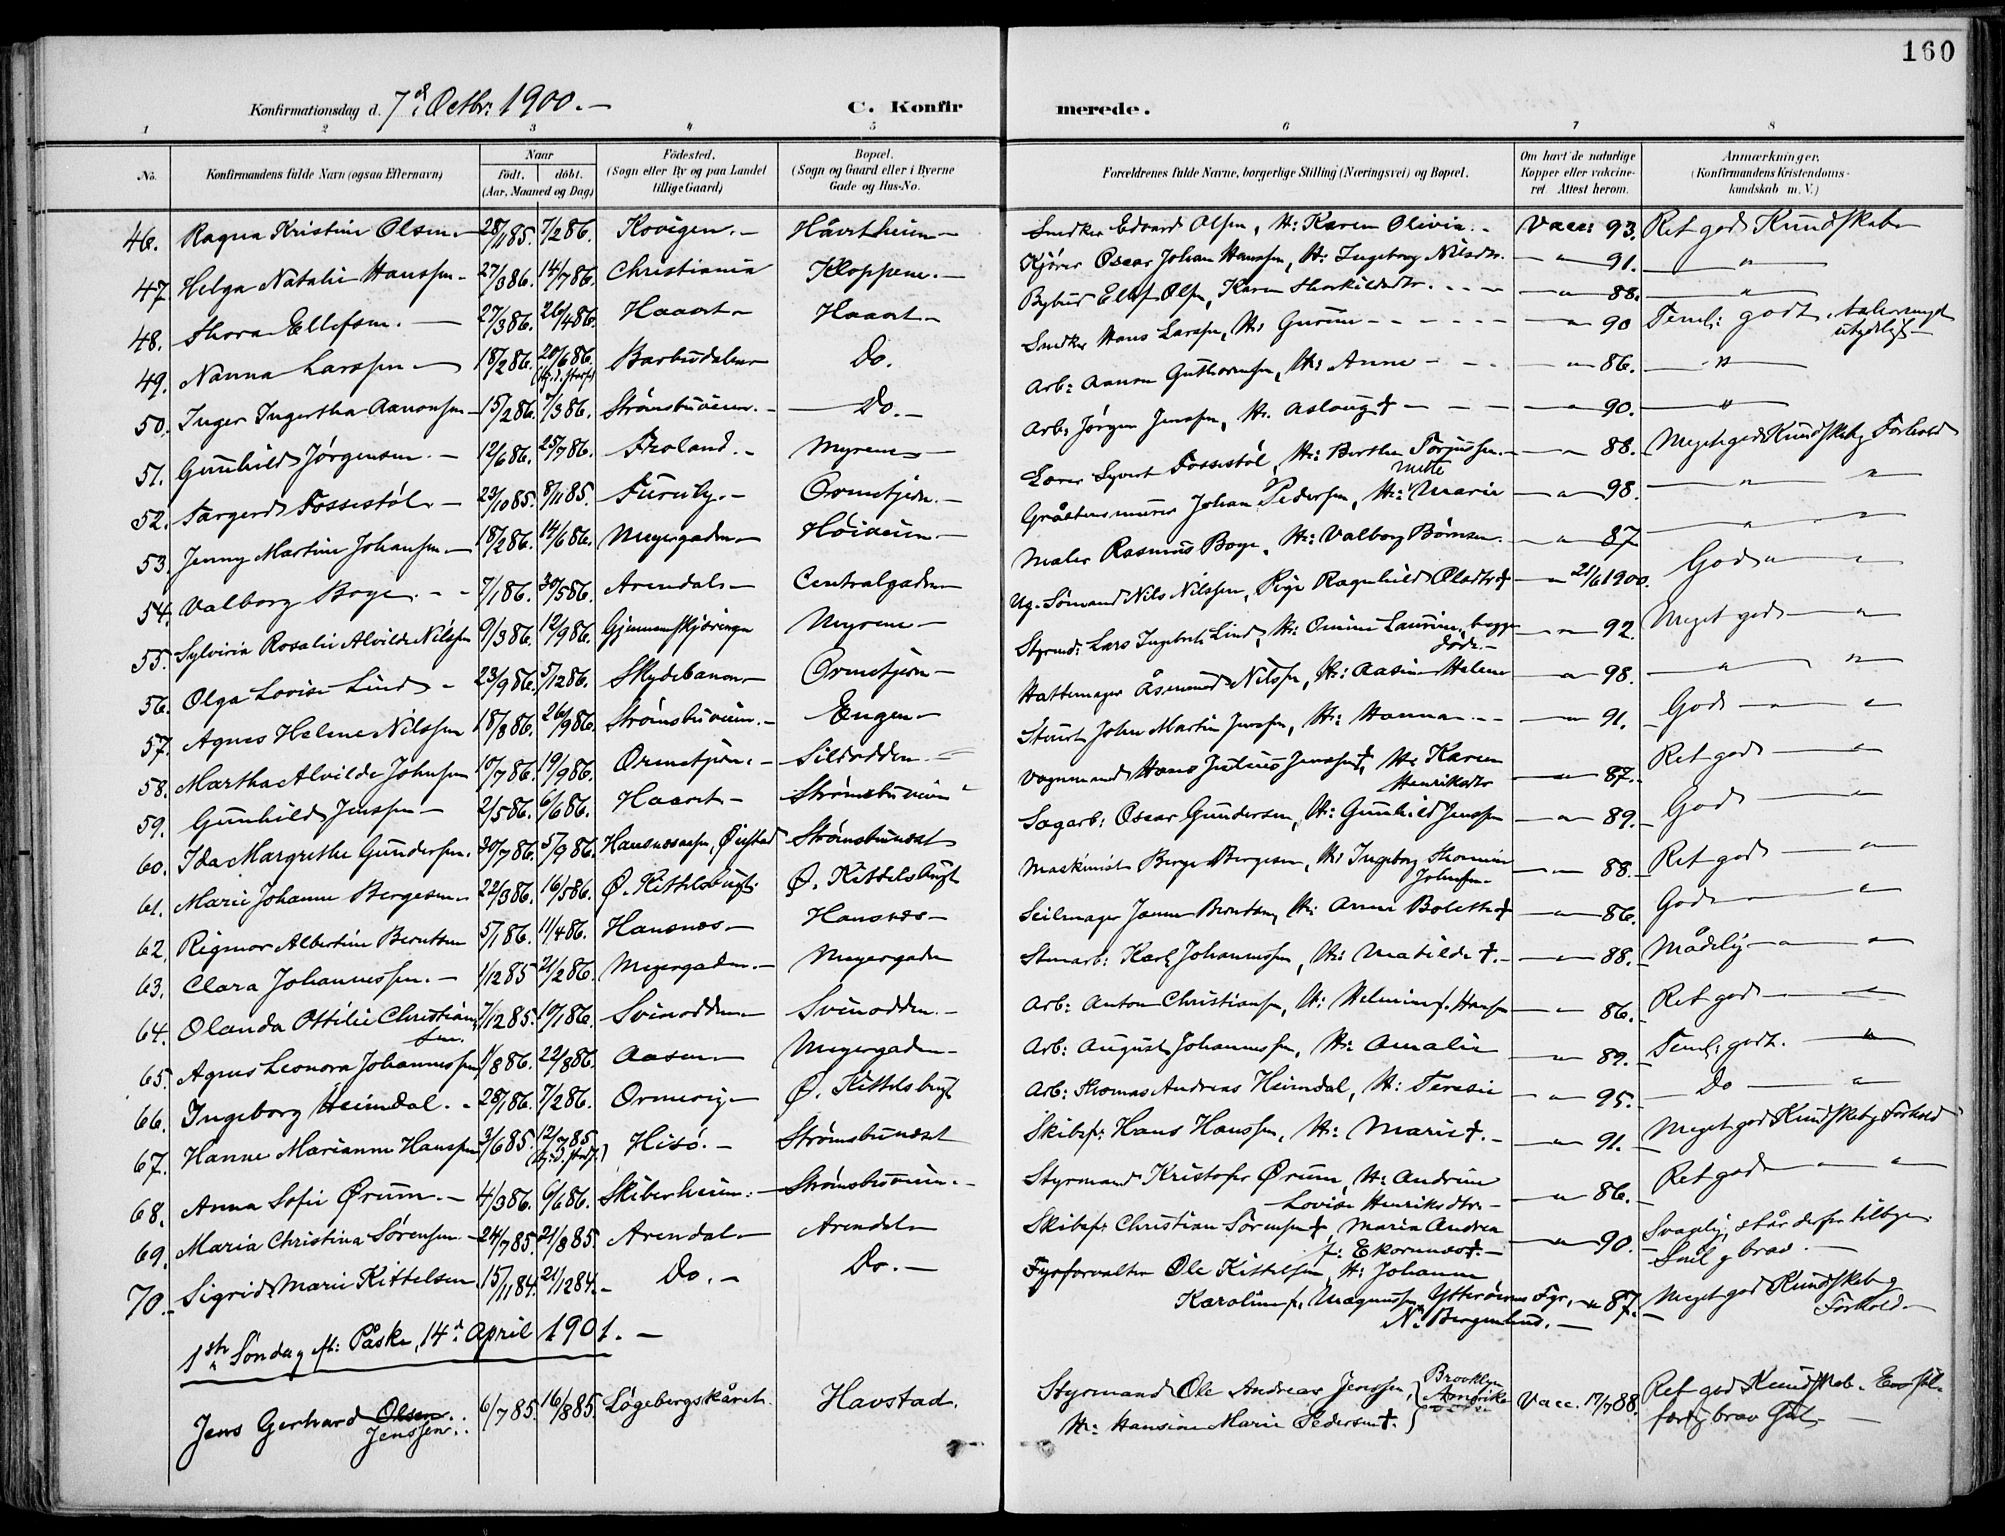 160
Konfirmationsdag d. 7de Octbr. 1900. —
C. Konfirmerede.
1 2 3 4 5 6 7 8
No. Konfirmandens fulde Navn (ogsaa Efternavn) Naar födt. döbt. (Aar, Maaned og Dag) Födested. (Sogn eller By og paa Landet tillige Gaard) Bopæl. (Sogn og Gaard eller i Byerne Gade og Hus-No. Forældrenes fulde Navne, borgerlige Stilling (Næringsvei) og Bopæl. Om havt de naturlige Kopper eller vakcineret. Attest herom. Anmærkninger. (Konfirmandens Kristendomskundskab m. V.)
46. Ragna Kristine Olsen — 28/1185. 7/286. Kovigen. — Håvetheim — Snedker Edvard Olsen, H: Karen Olivia. — Vacc: 93. Ret god Kundskab
47. Helga Natalie Hanssen — 27/386. 14/786. Christiania Kloppene. — Kjører Oscar Johan Hanssen, H: Ingeborg Nilsdtr. — " 91. — " —
48. Thora Ellefsen. — 27/386. 26/486. Haavet — Haavet — Bybud Ellef Olsen, Karen Thorkildsdtr. — " 88. — " —
49. Nanna Larssen — 18/286. 20/686. Barbudalen — Do. Snedker Hans Larssen, H: Gurine — " 90 Teml: godt.
50. Inger Ingertha Aanonsen — 15/286. 7/386. Strømsbuveien. — Do. — Arb: Aanon Guthormsen, H: Anne — " 86. — " —
51. Gunhild Jørgensen. — 12/686. 25/786. Froland. — Myrene — Arb: Jørgen Jenssen, H: Aslaug † — " 90. — " —
52. Targerd Fossestøl — 23/1085. 8/1185. Furuly. — Ormetjern. — Syvert Fossestøl, H: Berthe Torjussen. — " 88. Meget god Kundskab & Forhold
53. Jenny Martine Johansen — 18/286. 14/686. Meyergaden — Høiveien — Gråstensmurer Johan Pedersen, H: Mette Marie — " 98. — " — "
54. Valborg Boye. — 7/186. 30/586. Arendal — Centralgaden — Maler Rasmus Boye, H: Valborg Børnsen. — " 87 — " — "
55. Sylviria Rosalie Alvilde Nilssen 9/386. 12/986. Gjennemskjæringen Myrene — Ug. Sømand Nils Nilssen, Pige Ragnhild Olsdtr † — " 21/61900. God — " — "
56. Olga Lovise Lind — 23/986. 5/1286. Skydebanen — Ormetjern — Styrmd: Lars Ingebret Lind, H: Omine Laurine, begge døde. — " 92. Meget god — "
57. Agnes Helene Nilssen 18/886. 26/986. Strømsbuveien. — Engen — Hattemager Åsmund Nilssen, H: Aasine Helene — " 98. — " — "
58. Martha Alvilde Johnsen 10/786. 19/986. Ormetjern. — Sildodden. — Stuert John Martin Jenssen, H: Hanna — " 91. God — " — "
59. Gunhild Jenssen — 2/586. 6/686. Haavet — Strømsbuveien Vognmand Hans Julius Jenssen †, H: Karen Henriksdtr — " 87. Ret god — "
60. Ida Margrethe Gundersen. 30/786. 5/986. Hansnesaasen, Øiestad Strømsbunæst Sagarb: Oscar Gundersen, H: Gunhild Jenssen — " 89. God — "
61. Marie Johanne Bergesen. 22/386. 16/586. Ø. Kittelsbugt. Ø. Kittelsbugt Maskinist Berge Bergesen, H: Ingeborg Thomine Johnsen — " 88. Ret god — "
62. Rigmor Albertine Berntsen 5/186. 11/486. Hansnæs — Hansnæs — Seilmager Janne Berntsen, H: Anne Bolette † — " 86. God — "
63. Clara Johannessen. — 1/1285 21/286. Meyergaden. — Meyergaden Stenarb: Karl Johannessen, H: Matilde †. — " 88. Mådelig — " — "
64. Olanda Ottilie Christiansen. 7/1285. 10/186. Svinodden — Svinodden. — Arb: Anton Christiansen, H: Helmine f. Hansen — " 86. Ret god — "
65. Agnes Leonora Johannessen 1/886. 22/886. Aasen — Meyergaden — Arb: August Johannessen, H: Amalie — " 89. Teml: godt. — "
66. Ingeborg Heimdal. — 28/186. 7/286. Ormevig — Ø. Kittelsbugt Arb: Thomas Andreas Heimdal, H: Teresie — " 95. — Do — "
67. Hanne Marianne Hanssen 3/685. 12/785. Hisö. — Strømsbunæst Skibsf: Hans Hanssen, H: Marie †. — " 91. Meget god Kundskab & Forhold
68. Anna Sofie Ørum. — 4/386. 6/686. Skiberheim. — Strømsbuveien. — Styrmand Kristofer Ørum, H: Andrine Lovise Henriksdtr — " 86. Ret god — " — "
69. Maria Christina Sörensen. — 24/785. 21/885. Arendal — Arendal — Skibsf: Christian Sörensen †, Maria Andrea f: Ekornæs †. — " 90. Svagelig, står derfor tilbage. Snil & brav. —
70. Sigrid Marie Kittelsen. 15/1184. 21/1284. — Do. — Do. — Fyrforvalter Ole Kittelsen, H: Johanne Karoline f. Magnussen, Ytterøens Fyr, N. Bergenhus. — " 87. Meget god Kundskab & Forhold. —
1ste Söndag eft: Påske, 14de April 1901. —
Jens Gerhard Olsen Jenssen. 6/785. 16/885. Løgebergskåret. Havstad. Styrmand Ole Andreas Jenssen, Brooklyn Amerika
H: Hansine Marie Pedersen †. Vacc. 17/788. Ret god Kundskab. brav Gut. —